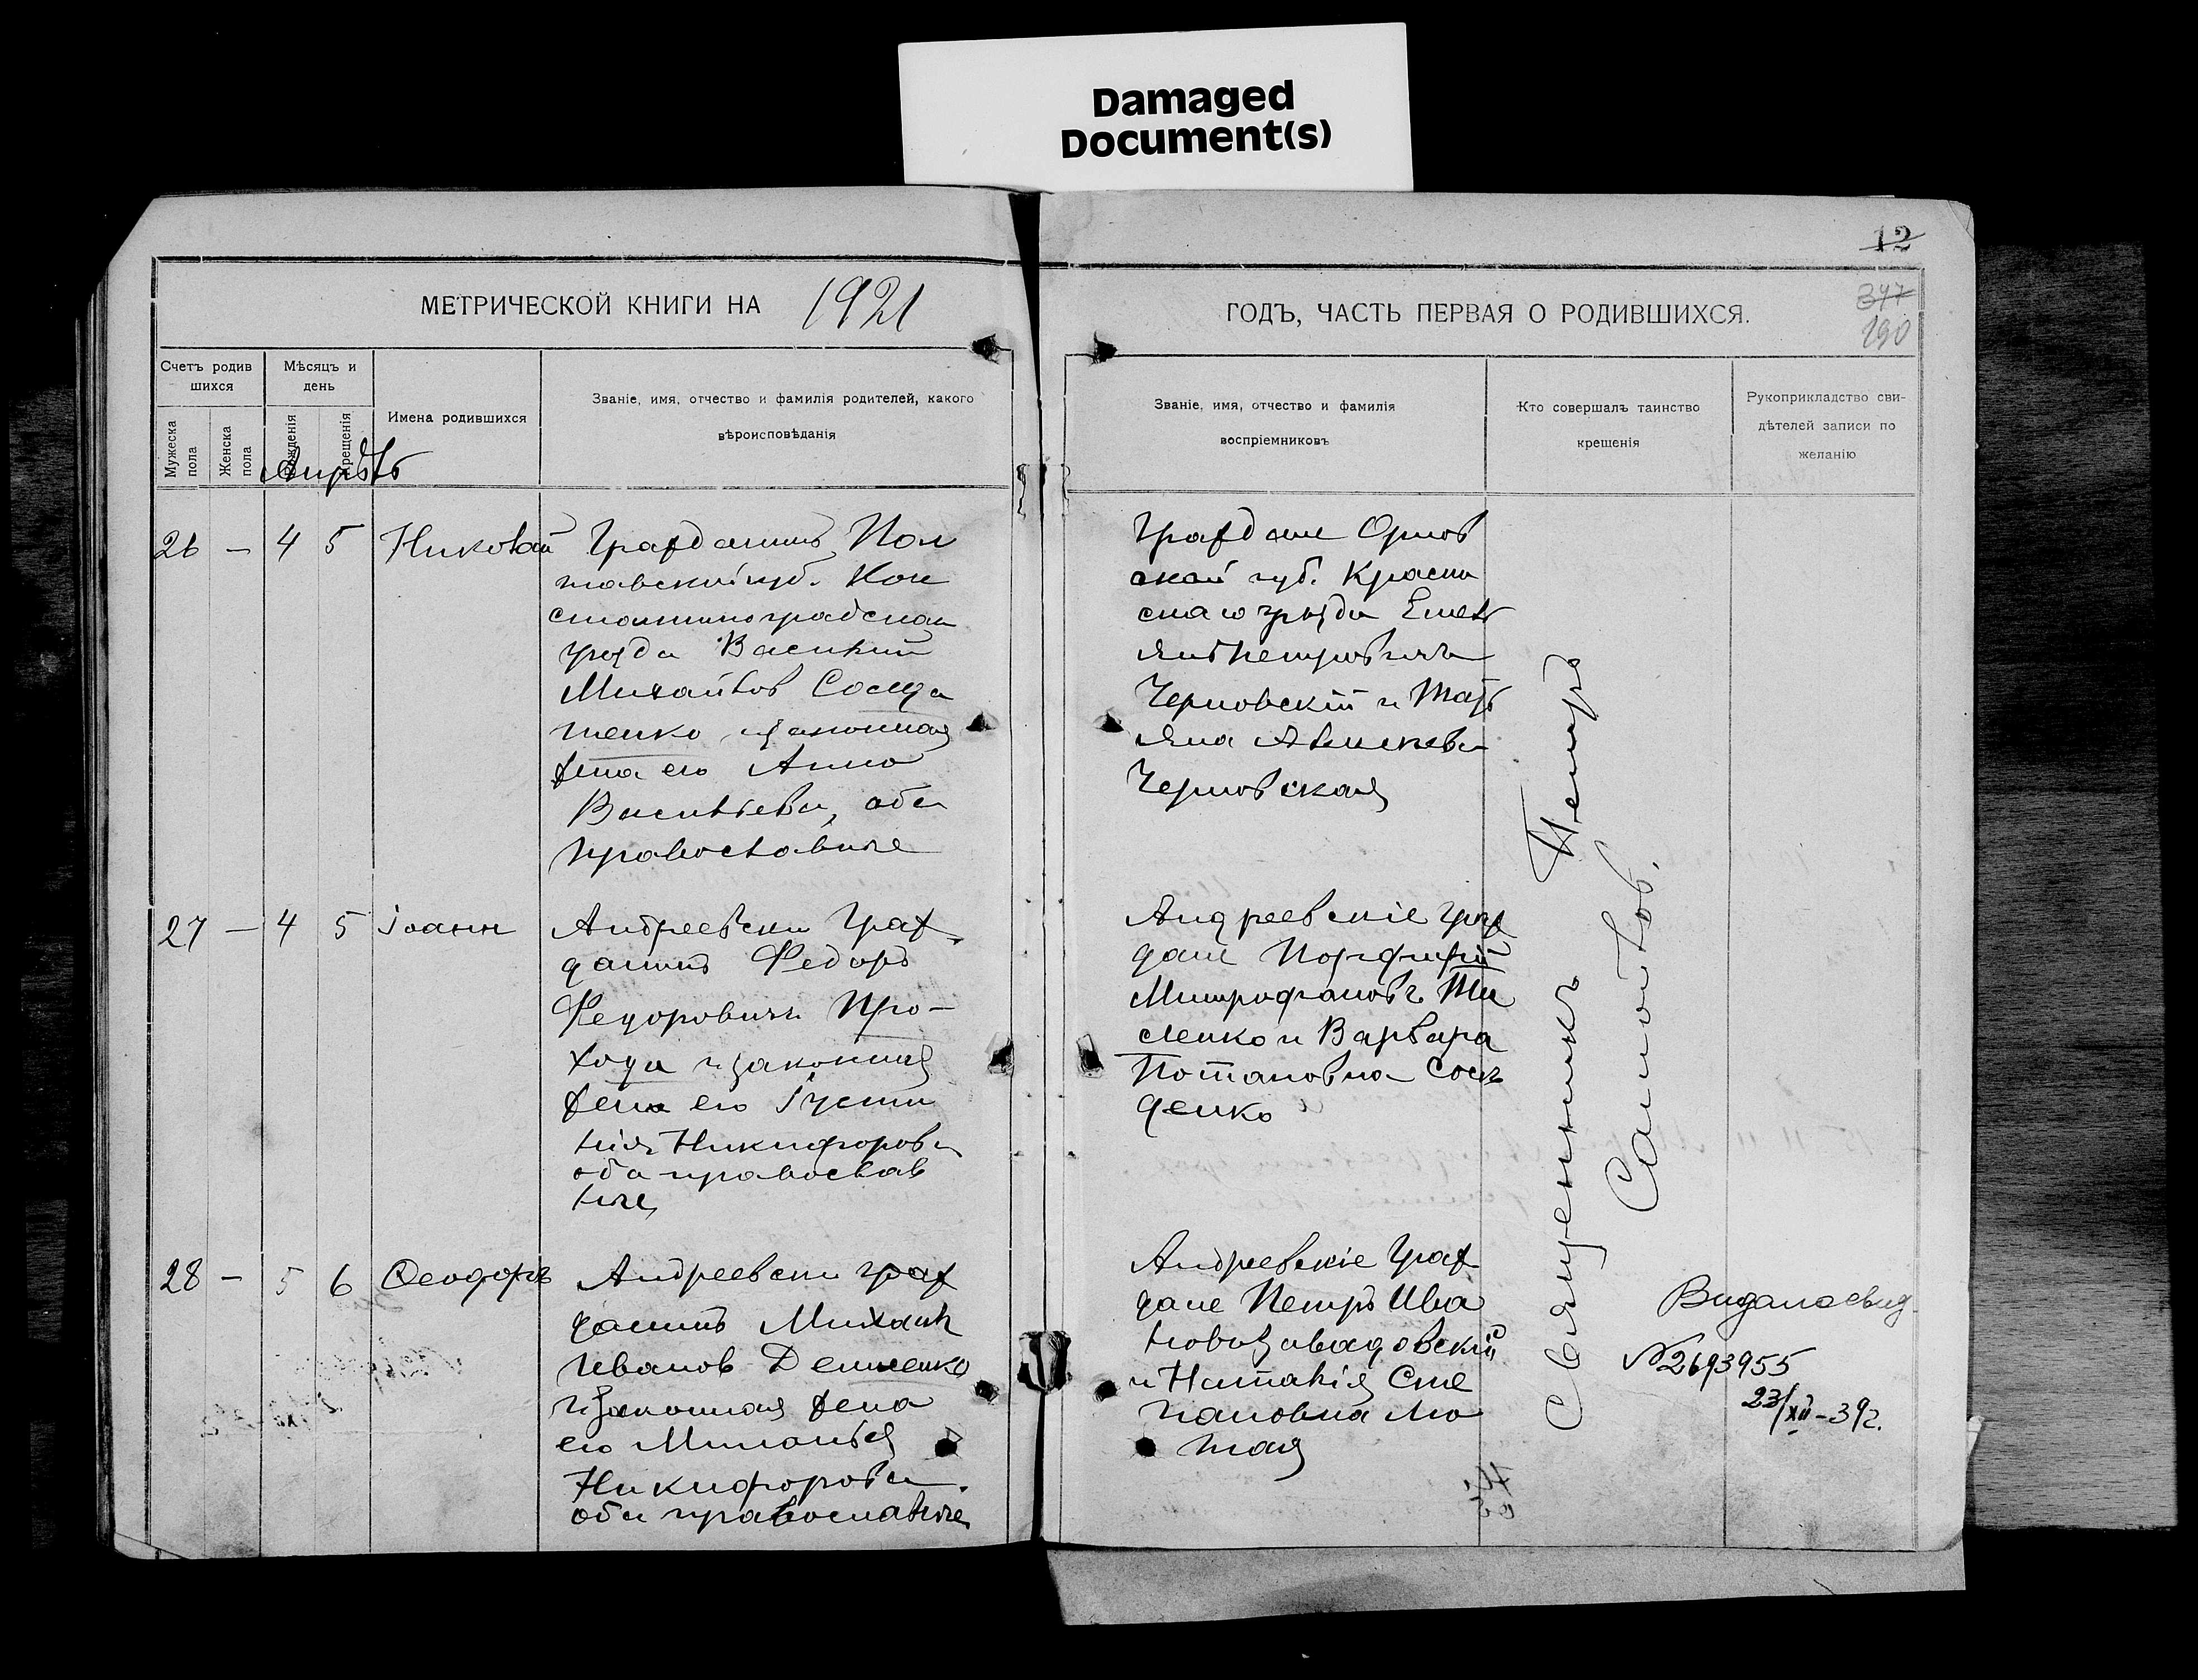 Damaged
Document(s)
12
МЕТРИЧЕСКОЙ КНИГИ НА 1921
ГОДЪ, ЧАСТЬ ПЕРВАЯ О РОДИВШИХСЯ.
347
190
Счетъ родив
шихся
Мѣсяцъ и
день
Мужеска
пола
Женска
пола
рожденія
крещенія
Имена родившихся
Званіе, имя, отчество и фамилія родителей, какого
вѣроисповѣданія
Званіе, имя, отчество и фамилія
воспріемниковъ
Кто совершалъ таинство
крещенія
Рукоприкладство сви-
дѣтелей записи по
желанію
Апрѣль
26 — 4 5 Николай
Гражданинъ Пол
тавской губ. Кон
стантиноградскаго
уѣзда Василий
Михайлов
тенко и законная
жена его Анна
Васильева, оба
православные
Граждане Орлов
ской губ.
скаго уѣзда Емел
ян Петрович
Черновскій и Тать
яна Алексеева
Черновская
27 — 4 5 Іоанн
Андреевски граж
данинъ Федоръ
Федорович Про-
хода и законная
жена его Іусти
нія Никифорова
оба православ
ные
Андреевскіе граж
дане Порфирій
Митрофановъ Ти
сленко и Варвара
Потаповна
денко
28 — 5 6 Ѳеодоръ
Андреевски граж
данинъ Михаил
Иванов Денисенко
и законная жена
его Миланья
Никифорова
оба православные
Андреевскіе граж
дане Петръ Ива
нов Завадовскій
и Наталія Сте
пановна Лю
тая
Священникъ Петръ
Самойлов.
Выдано свид.
№2693955
23/XII-39г.